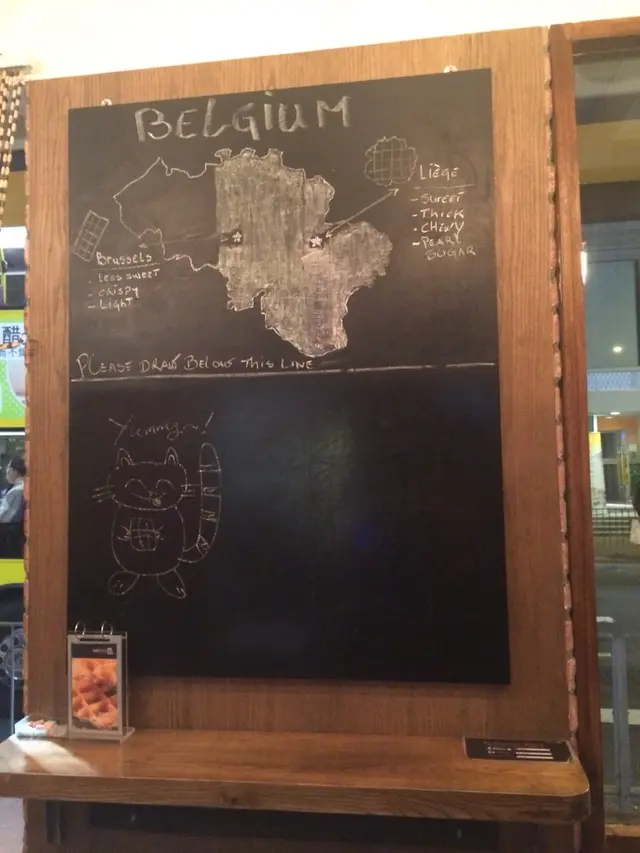 BELGIUM
LIÈGE
- SWEET
- THICK
- CHEWY
- PEARL
SUGAR
Brussels
- LESS SWEET
- CRISPY
- LIGHT
PLEASE DRAW BELOW THIS LINE
醋